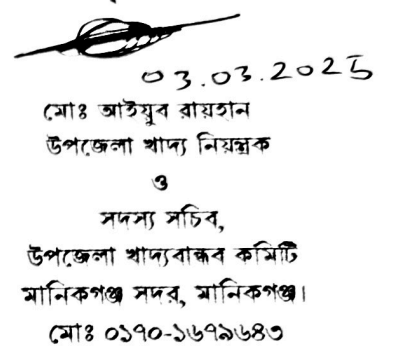 03.03.2025
মোঃ আইয়ুব রায়হান
উপজেলা খাদ্য নিয়ন্ত্রক
ও
সদস্য সচিব,
উপজেলা খাদ্যবান্ধব কমিটি
মানিকগঞ্জ সদর, মানিকগঞ্জ।
মোঃ ০১৭০-১৬৭৯৬৪৩